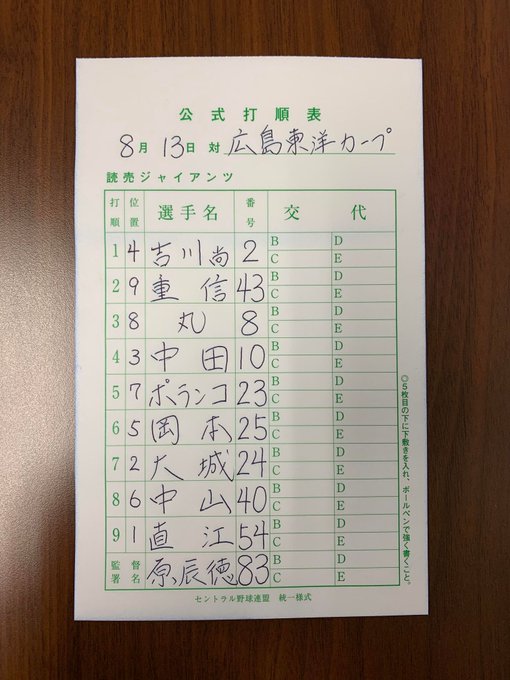 公式打順表
8月 13日 対 広島東洋カープ
読売ジャイアンツ
打順 位置 選手名 番号 交代
1 4 吉川尚 2 B D C E
2 9 重信 43 B D C E
3 8 丸 8 B D C E
4 3 中田 10 B D C E
5 7 ポランコ 23 B D C E
6 5 岡本 25 B D C E
7 2 大城 24 B D C E
8 6 中山 40 B D C E
9 1 直江 54 B D C E
監督署名 原辰徳 83 B D C E
◎5枚目の下に下敷きを入れ、ボールペンで強く書くこと。
セントラル野球連盟 統一様式